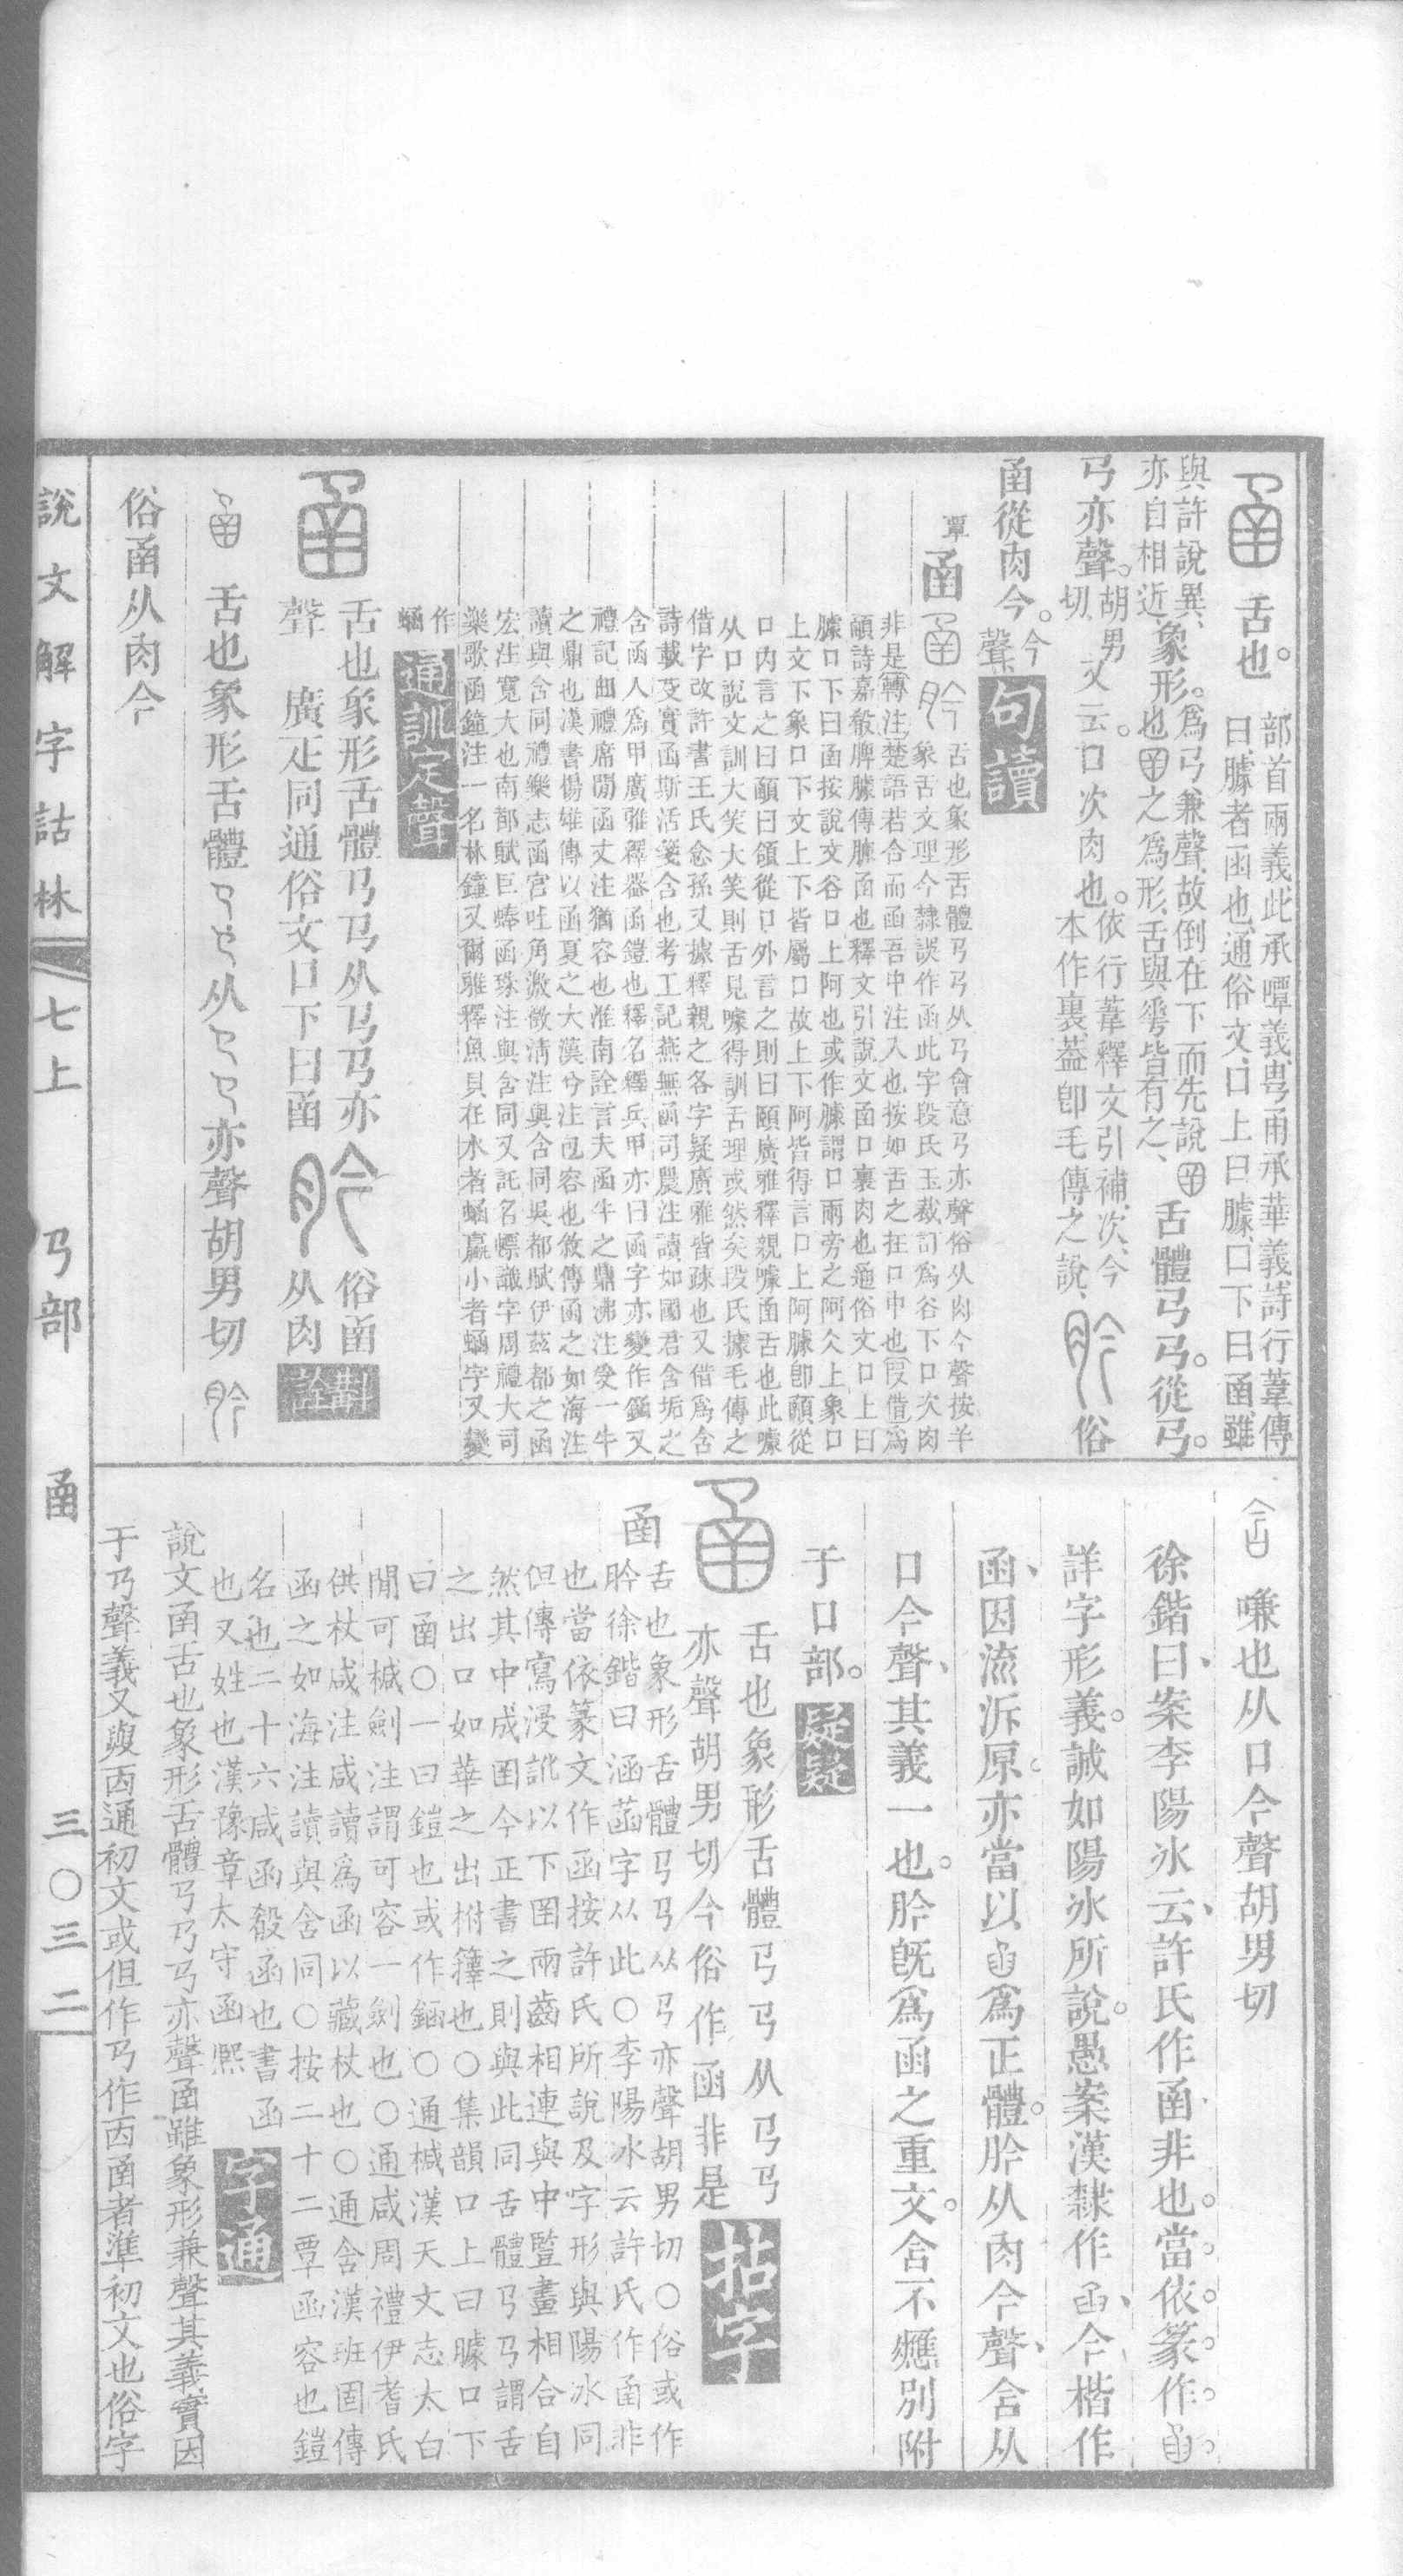 舌也。
部首兩義此承嘾義甹甬承華義詩行葦傳
曰臄者函也通俗文口上曰臄口下曰函雖
與許說異
亦自相近
象形。
舌體㔾㔾。從㔾。
㔾亦聲。
胡男切
口次肉也。
依行葦釋文引補次今
本作裏葢卽毛傳之說
俗
函從肉今。
今聲
句讀
覃
函
舌也象形舌體㔾㔾从㔾會意㔾亦聲俗从肉今聲按羊
象舌文理今隸誤作函此字段氏玉裁訂爲谷下口次肉
非是轉注楚語若合而函吾中注入也按如舌之在口中也叚借爲
顄詩嘉殽脾臄傳臄函也釋文引說文函口裏肉也通俗文口上曰
臄口下曰函按說文谷口上阿也或作臄謂口兩旁之阿仌上象口
上文下象口下文上下皆屬口故上下阿皆得言口上阿臄卽顄從
口內言之曰顄曰頷從口外言之則曰頤廣雅釋親噱函舌也此噱
从口說文訓大笑大笑則舌見噱得訓舌理或然矣段氏據毛傳之
借字改許書王氏念孫又據釋親之各字疑廣雅皆疎也又借爲含
詩載芟實函斯活箋含也考工記燕無函司農注讀如國君含垢之
含函人爲甲廣雅釋器函鎧也釋名釋兵甲亦曰函字亦變作𨥧又
禮記曲禮席閒函丈注猶容也淮南詮言夫函牛之鼎沸注受一牛
之鼎也漢書揚雄傳以函夏之大漢兮注包容也敘傳函之如海注
讀與含同禮樂志函宮吐角激徵淸注與含同吳都賦伊茲都之函
宏注寬大也南都賦巨蜯函珠注與含同又託名幖識字周禮大司
樂歌函鐘注一名林鐘又爾雅釋魚貝在水者蜬蠃小者蜬字又變
作
蜬
通訓定聲
舌也象形舌體㔾㔾从㔾㔾亦
聲 廣疋同通俗文口下曰函
俗函
从肉
斠詮
舌也象形舌體㔾㔾从㔾㔾亦聲胡男切
俗函从肉今
嗛也从口今聲胡男切
徐鍇曰、案李陽冰云、許氏作函非也。當依篆作
詳字形義。誠如陽冰所說。愚案漢隸作 今楷作
函、因流泝原。亦當以 爲正體。肣从肉今聲、含从
口今聲、其義一也。肣旣爲函之重文。含不應別附
于口部。
疑疑
舌也象形舌體㔾㔾从㔾㔾
亦聲胡男切今俗作函非是
拈字
函
舌也象形舌體㔾㔾从㔾亦聲胡男切○俗或作
肣徐鍇曰涵菡字从此○李陽冰云許氏作函非
也當依篆文作函按許氏所說及字形與陽冰同
但傳寫浸訛以下圉兩齒相連與中豎畫相合自
然其中成囲今正書之則與此同舌體㔾㔾謂舌
之出口如華之出柎籜也○集韻口上曰臄口下
曰函○一曰鎧也或作𨥧○通椷漢天文志太白
閒可椷劍注謂可容一劍也○通咸周禮伊耆氏
供杖咸注咸讀爲函以藏杖也○通含漢班固傳
函之如海注讀與含同○按二十二覃函容也鎧
名也二十六咸函殽函也書函
也又姓也漢豫章太守函熙
字通
說文函舌也象形舌體㔾㔾㔾亦聲函雖象形兼聲其義實因
于㔾聲義又與㐁通初文或但作㔾作㐁函者準初文也俗字
說文解字詁林
七上 㔾部 函
三〇三二